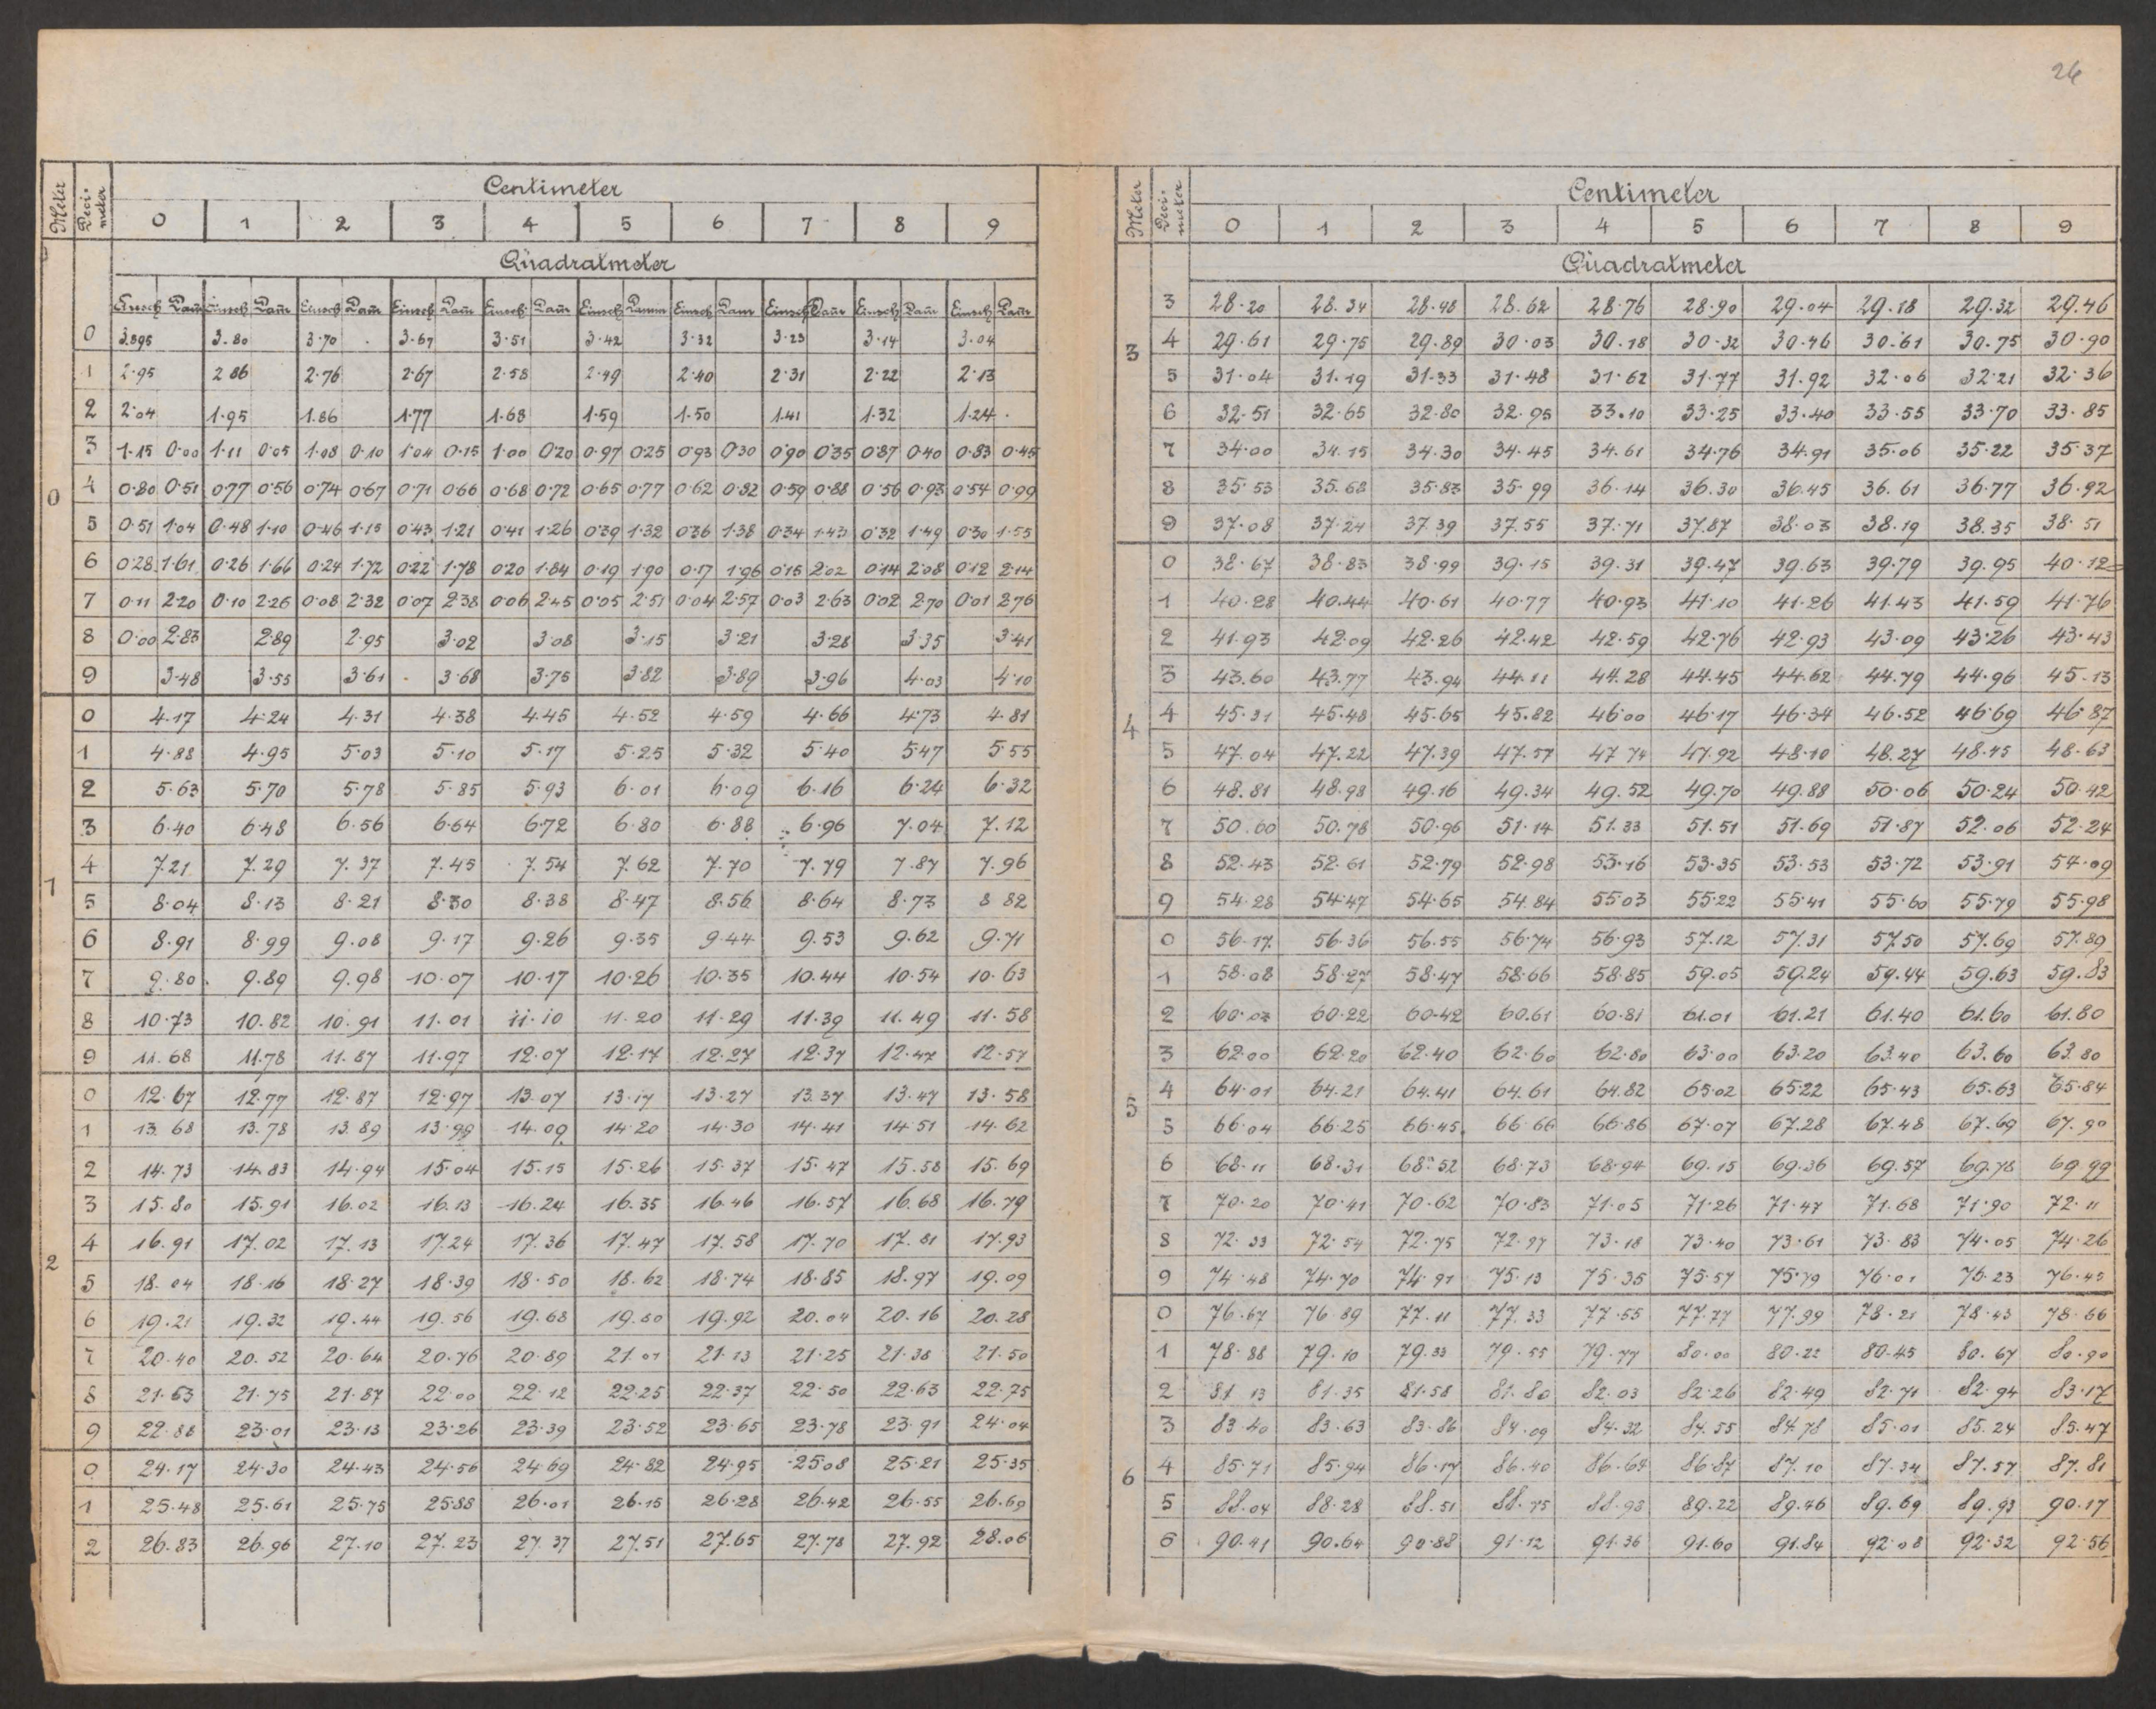 26
Meter Deci-meter Centimeter
0 1 2 3 4 5 6 7 8 9
Quadratmeter
Einsch Dam Einsch Dam Einsch Dam Einsch Dam Einsch Dam Einsch Damm Einsch Dam Einsch Dam Einsch Dam Einsch Dam
0 3.895 3.80 3.70 3.61 3.51 3.42 3.32 3.23 3.14 3.04
1 2.95 2.86 2.76 2.67 2.58 2.49 2.40 2.31 2.22 2.13
2 2.04 1.95 1.86 1.77 1.68 1.59 1.50 1.41 1.32 1.24
3 1.15 0.00 1.11 0.05 1.08 0.10 1.04 0.15 1.00 0.20 0.97 0.25 0.93 0.30 0.90 0.35 0.87 0.40 0.83 0.45
0 4 0.80 0.51 0.77 0.56 0.74 0.67 0.71 0.66 0.68 0.72 0.65 0.77 0.62 0.82 0.59 0.88 0.56 0.93 0.54 0.99
5 0.51 1.04 0.48 1.10 0.46 1.15 0.43 1.21 0.41 1.26 0.39 1.32 0.36 1.38 0.34 1.43 0.32 1.49 0.30 1.55
6 0.28 1.61 0.26 1.66 0.24 1.72 0.22 1.78 0.20 1.84 0.19 1.90 0.17 1.96 0.15 2.02 0.14 2.08 0.12 2.14
7 0.11 2.20 0.10 2.26 0.08 2.32 0.07 2.38 0.06 2.45 0.05 2.51 0.04 2.57 0.03 2.63 0.02 2.70 0.01 2.76
8 0.00 2.83 2.89 2.95 3.02 3.08 3.15 3.21 3.28 3.35 3.41
9 3.48 3.55 3.61 3.68 3.75 3.82 3.89 3.96 4.03 4.10
0 4.17 4.24 4.31 4.38 4.45 4.52 4.59 4.66 4.73 4.81
1 4.88 4.95 5.03 5.10 5.17 5.25 5.32 5.40 5.47 5.55
2 5.63 5.70 5.78 5.85 5.93 6.01 6.09 6.16 6.24 6.32
3 6.40 6.48 6.56 6.64 6.72 6.80 6.88 6.96 7.04 7.12
4 7.21 7.29 7.37 7.45 7.54 7.62 7.70 7.79 7.87 7.96
1 5 8.04 8.13 8.21 8.30 8.38 8.47 8.56 8.64 8.73 8.82
6 8.91 8.99 9.08 9.17 9.26 9.35 9.44 9.53 9.62 9.71
7 9.80 9.89 9.98 10.07 10.17 10.26 10.35 10.44 10.54 10.63
8 10.73 10.82 10.91 11.01 11.10 11.20 11.29 11.39 11.49 11.58
9 11.68 11.78 11.87 11.97 12.07 12.17 12.27 12.37 12.47 12.57
0 12.67 12.77 12.87 12.97 13.07 13.17 13.27 13.37 13.47 13.58
1 13.68 13.78 13.89 13.99 14.09 14.20 14.30 14.41 14.51 14.62
2 14.73 14.83 14.94 15.04 15.15 15.26 15.37 15.47 15.58 15.69
3 15.80 15.91 16.02 16.13 16.24 16.35 16.46 16.57 16.68 16.79
4 16.91 17.02 17.13 17.24 17.36 17.47 17.58 17.70 17.81 17.93
2 5 18.04 18.16 18.27 18.39 18.50 18.62 18.74 18.85 18.97 19.09
6 19.21 19.32 19.44 19.56 19.68 19.80 19.92 20.04 20.16 20.28
7 20.40 20.52 20.64 20.76 20.89 21.01 21.13 21.25 21.38 21.50
8 21.63 21.75 21.87 22.00 22.12 22.25 22.37 22.50 22.63 22.75
9 22.88 23.01 23.13 23.26 23.39 23.52 23.65 23.78 23.91 24.04
0 24.17 24.30 24.43 24.56 24.69 24.82 24.95 25.08 25.21 25.35
1 25.48 25.61 25.75 25.88 26.01 26.15 26.28 26.42 26.55 26.69
2 26.83 26.96 27.10 27.23 27.37 27.51 27.65 27.78 27.92 28.06
Meter Deci-meter Centimeter
0 1 2 3 4 5 6 7 8 9
Quadratmeter
3 28.20 28.34 28.48 28.62 28.76 28.90 29.04 29.18 29.32 29.46
3 4 29.61 29.75 29.89 30.03 30.18 30.32 30.46 30.61 30.75 30.90
5 31.04 31.19 31.33 31.48 31.62 31.77 31.92 32.06 32.21 32.36
6 32.51 32.65 32.80 32.95 33.10 33.25 33.40 33.55 33.70 33.85
7 34.00 34.15 34.30 34.45 34.61 34.76 34.91 35.06 35.22 35.37
8 35.53 35.68 35.83 35.99 36.14 36.30 36.45 36.61 36.77 36.92
9 37.08 37.24 37.39 37.55 37.71 37.87 38.03 38.19 38.35 38.51
0 38.67 38.83 38.99 39.15 39.31 39.47 39.63 39.79 39.95 40.12
1 40.28 40.44 40.61 40.77 40.93 41.10 41.26 41.43 41.59 41.76
2 41.93 42.09 42.26 42.42 42.59 42.76 42.93 43.09 43.26 43.43
3 43.60 43.77 43.94 44.11 44.28 44.45 44.62 44.79 44.96 45.13
4 4 45.31 45.48 45.65 45.82 46.00 46.17 46.34 46.52 46.69 46.87
5 47.04 47.22 47.39 47.57 47.74 47.92 48.10 48.27 48.45 48.63
6 48.81 48.98 49.16 49.34 49.52 49.70 49.88 50.06 50.24 50.42
7 50.60 50.78 50.96 51.14 51.33 51.51 51.69 51.87 52.06 52.24
8 52.43 52.61 52.79 52.98 53.16 53.35 53.53 53.72 53.91 54.09
9 54.28 54.47 54.65 54.84 55.03 55.22 55.41 55.60 55.79 55.98
0 56.17 56.36 56.55 56.74 56.93 57.12 57.31 57.50 57.69 57.89
1 58.08 58.27 58.47 58.66 58.85 59.05 59.24 59.44 59.63 59.83
2 60.02 60.22 60.42 60.61 60.81 61.01 61.21 61.40 61.60 61.80
3 62.00 62.20 62.40 62.60 62.80 63.00 63.20 63.40 63.60 63.80
5 4 64.01 64.21 64.41 64.61 64.82 65.02 65.22 65.43 65.63 65.84
5 66.04 66.25 66.45 66.66 66.86 67.07 67.28 67.48 67.69 67.90
6 68.11 68.31 68.52 68.73 68.94 69.15 69.36 69.57 69.78 69.99
7 70.20 70.41 70.62 70.83 71.05 71.26 71.47 71.68 71.90 72.11
8 72.33 72.54 72.75 72.97 73.18 73.40 73.61 73.83 74.05 74.26
9 74.48 74.70 74.91 75.13 75.35 75.57 75.79 76.01 76.23 76.45
0 76.67 76.89 77.11 77.33 77.55 77.77 77.99 78.21 78.43 78.66
1 78.88 79.10 79.33 79.55 79.77 80.00 80.22 80.45 80.67 80.90
2 81.13 81.35 81.58 81.80 82.03 82.26 82.49 82.71 82.94 83.17
3 83.40 83.63 83.86 84.09 84.32 84.55 84.78 85.01 85.24 85.47
6 4 85.71 85.94 86.17 86.40 86.64 86.87 87.10 87.34 87.57 87.81
5 88.04 88.28 88.51 88.75 88.98 89.22 89.46 89.69 89.93 90.17
6 90.41 90.64 90.88 91.12 91.36 91.60 91.84 92.08 92.32 92.56